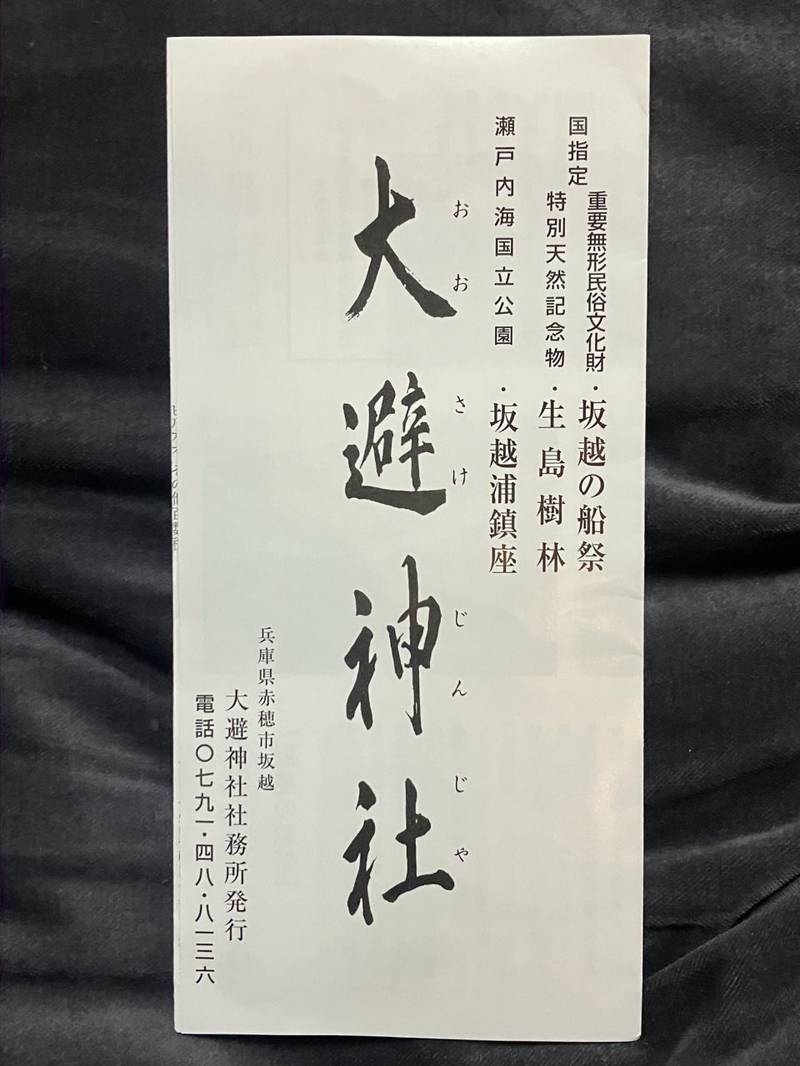 国指定
重要無形民俗文化財・坂越の船祭
特別天然記念物・生島樹林
瀬戸内海国立公園・坂越浦鎮座
おおさけじんじゃ
大避神社
兵庫県赤穂市坂越
大避神社社務所発行
電話〇七九一・四八・八一三六